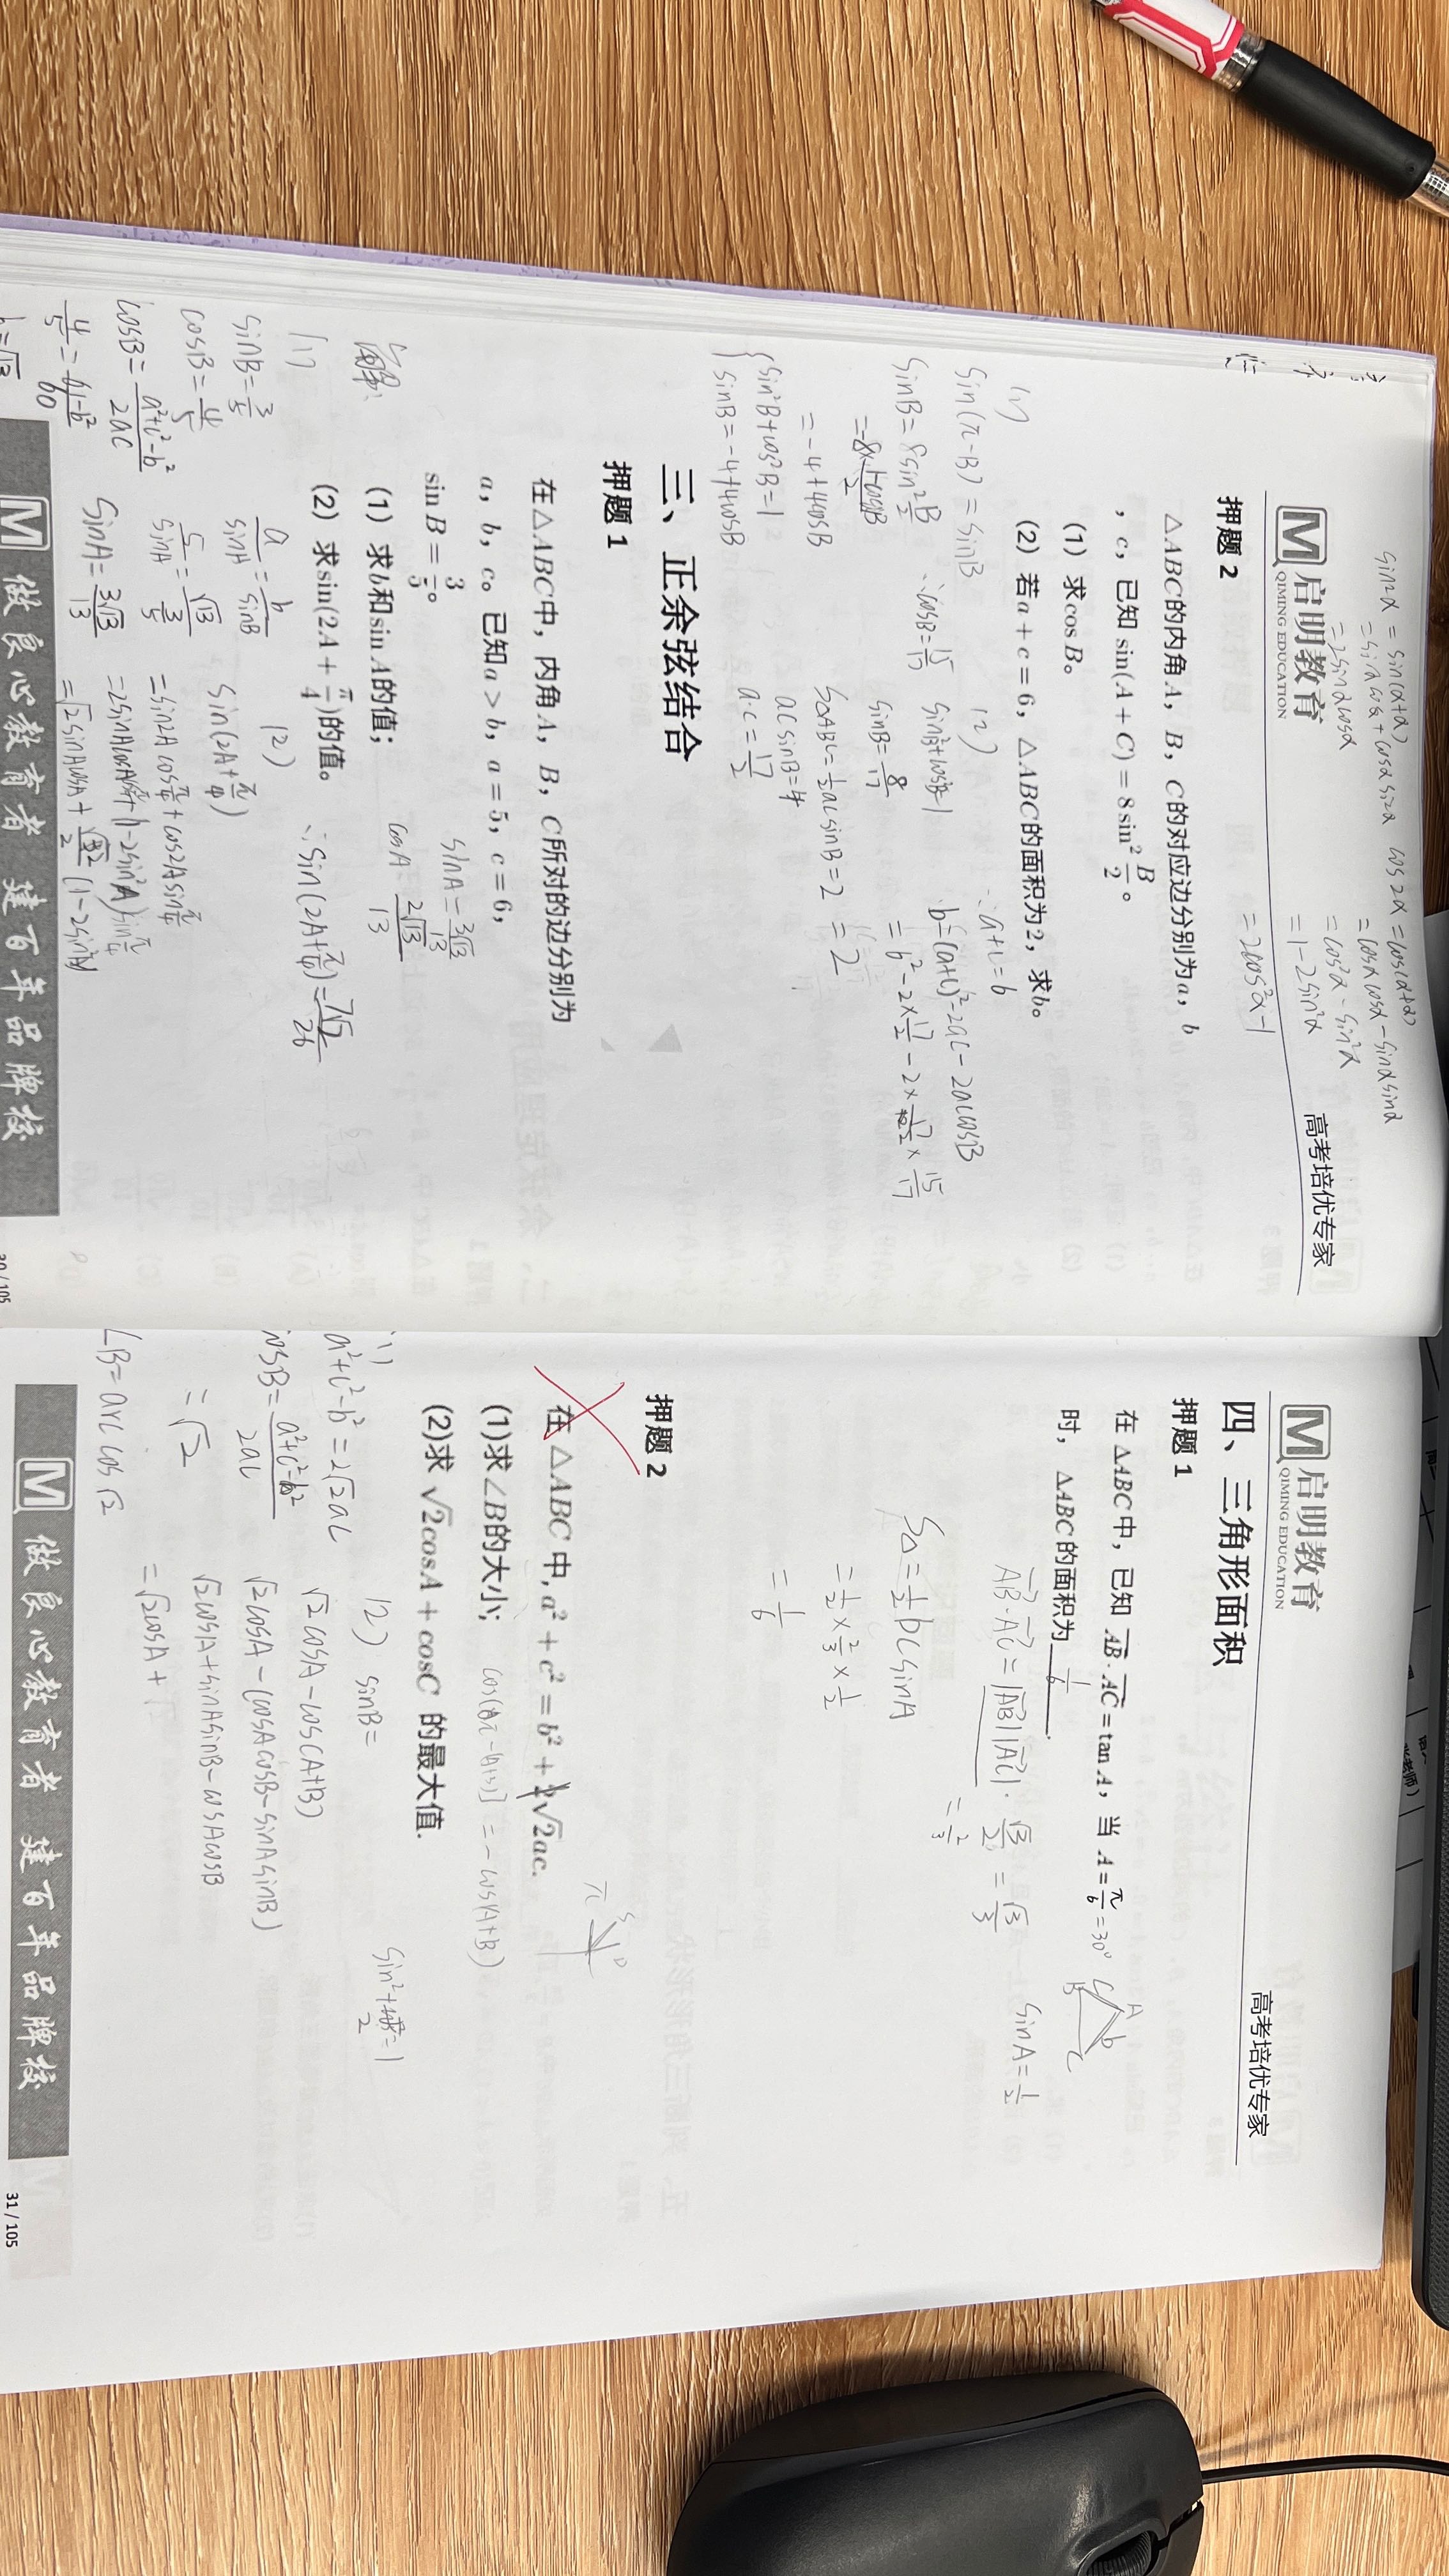 sin2α = sin(α+α)
= sinαcosα + cosαsinα
= 2sinαcosα
cos2α = cos(α+α)
= cosαcosα - sinαsinα
= cos²α - sin²α
= 1-2sin²α
= 2cos²α-1
M 启明教育
QIMING EDUCATION
高考培优专家
押题 2
△ABC的内角A，B，C的对应边分别为a，b
，c，已知 sin(A+C)=8sin² B/2 。
(1) 求cosB。
(2) 若a+c=6，△ABC的面积为2，求b。
(1)
sin(π-B) = sinB
sinB = 8sin² B/2
= -4+4cosB
{ sin²B+cos²B=1
sinB=-4+4cosB
∴cosB=15/17
(2)
sinB=8/17
S△ABC=1/2 acsinB=2
acsinB=4
a·c=17/2
∵a+c=6
b²=(a+c)²-2ac-2accosB
= 6²-2×17/2-2×17/2×15/17
= 2
三、正余弦结合
押题 1
在△ABC中，内角A，B，C所对的边分别为
a，b，c。已知a>b，a=5，c=6，
sin B = 3/5 。
(1) 求b和sin A的值；
(2) 求sin(2A + π/4)的值。
解:
(1)
sinB=3/5
cosB=4/5
cosB= a²+c²-b² / 2ac
4/5 = 61-b² / 60
b=√13
a/sinA = b/sinB
5/sinA = √13 / 3/5
sinA= 3√13/13
(2)
sin(2A+π/4)
=sin2Acosπ/4+cos2Asinπ/4
=2sinAcosAcosπ/4+(1-2sin²A)sinπ/4
=√2sinAcosA+ √2/2 (1-2sin²A)
sinA=3√13/13
cosA=2√13/13
∴sin(2A+π/4)=7√2/26
M 做良心教育者 建百年品牌校
30/105
M 启明教育
QIMING EDUCATION
高考培优专家
四、三角形面积
押题 1
在 △ABC中，已知 AB·AC=tan A，当 A=π/6 =30°
时，△ABC 的面积为 1/6 .
A
B
C
c
b
AB·AC=|AB||AC|·√3/2=√3/3
= 2/3
sinA=1/2
S△=1/2 bcsinA
=1/2×2/3×1/2
=1/6
押题 2
在 △ABC 中, a²+c²=b²+√2ac.
(1)求∠B的大小;
cos[π-(A+B)] = -cos(A+B)
(2)求 √2cosA+cosC 的最大值.
(1)
a²+c²-b²=2√2ac
cosB= a²+c²-b² / 2ac
= √2
∠B=arccos√2
(2) sinB=
√2cosA-cos(A+B)
√2cosA-(cosAcosB-sinAsinB)
√2cosA+sinAsinB-cosAcosB
=√2cosA+
M 做良心教育者 建百年品牌校
31/105